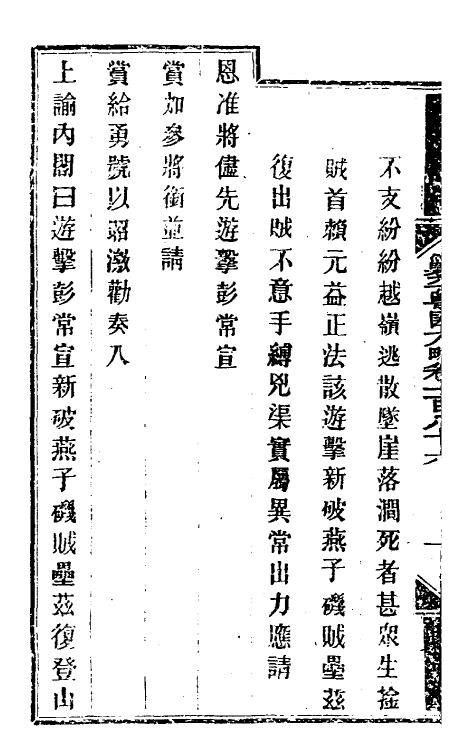 不支紛紛越嶺逃散墜崖落澗死者甚衆生擒
賊首賴元益正法該遊擊新破燕子磯賊壘茲
復出賊不意手縛兇渠實屬異常出力應請
恩准將儘先遊擊彭常宣
賞加參將銜並請
賞給勇號以昭激勸奏入
上諭內閣曰遊擊彭常宣新破燕子磯賊壘茲復登山